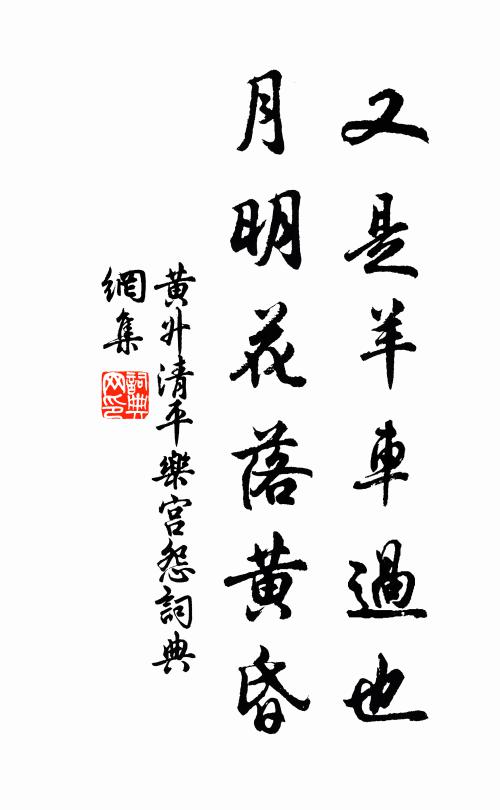 又是羊車過也
月明花落黃昏
黃外清平樂宮怨詞典
網集
詞典
网印